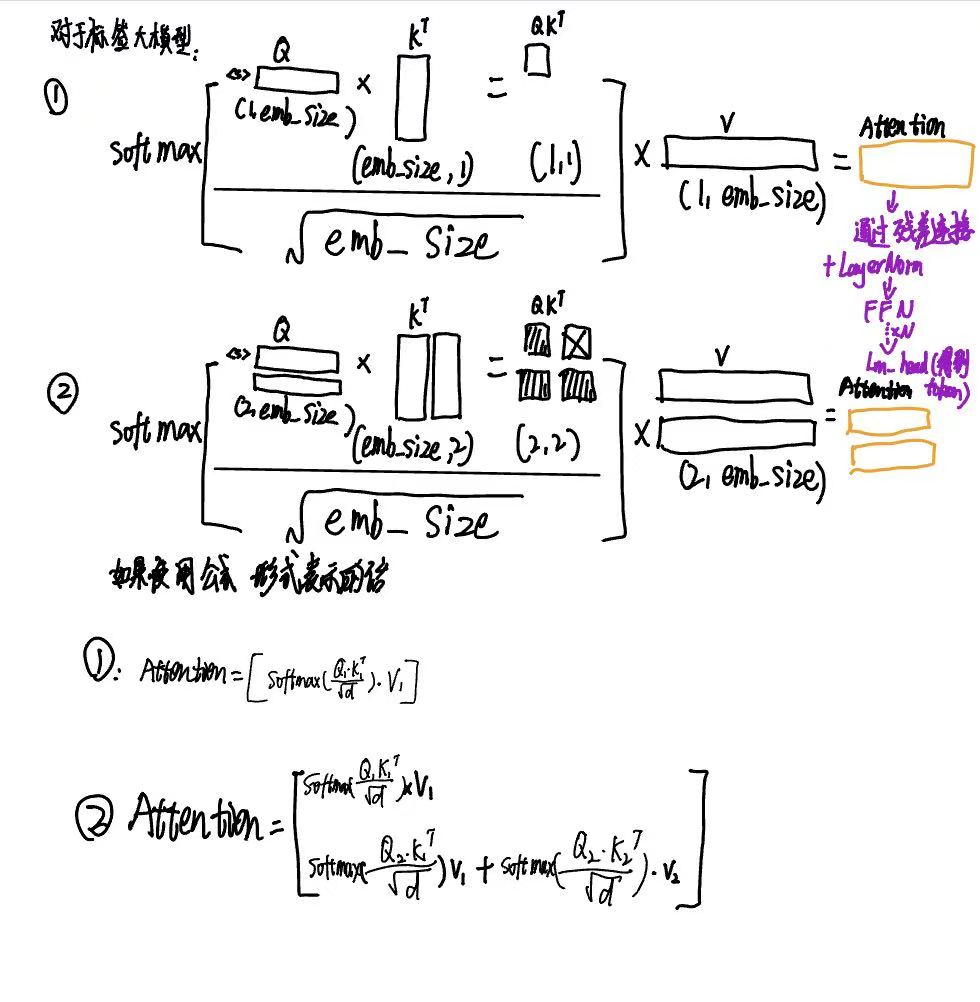 对于标签大模型:
① Softmax [ <s> Q × K^T = QK^T ] × V = Attention
(1, emb_size) (emb_size, 1) (1,1) (1, emb_size)
√emb_size
↓
通过残差连接
+LayerNorm
↓
FFN
×N
↓
Lm_head(得到token)
② Softmax [ <s> Q × K^T = QK^T ] × V = Attention
(2, emb_size) (emb_size, 2) (2,2) (2, emb_size)
√emb_size
如果使用公式 形式表示的话
①: Attention = [ Softmax(Q₁·K₁^T/√d)·V₁ ]
② Attention = [ Softmax(Q₁K₁^T/√d)×V₁
Softmax(Q₂·K₁^T/√d)V₁ + Softmax(Q₂·K₂^T/√d)·V₂ ]